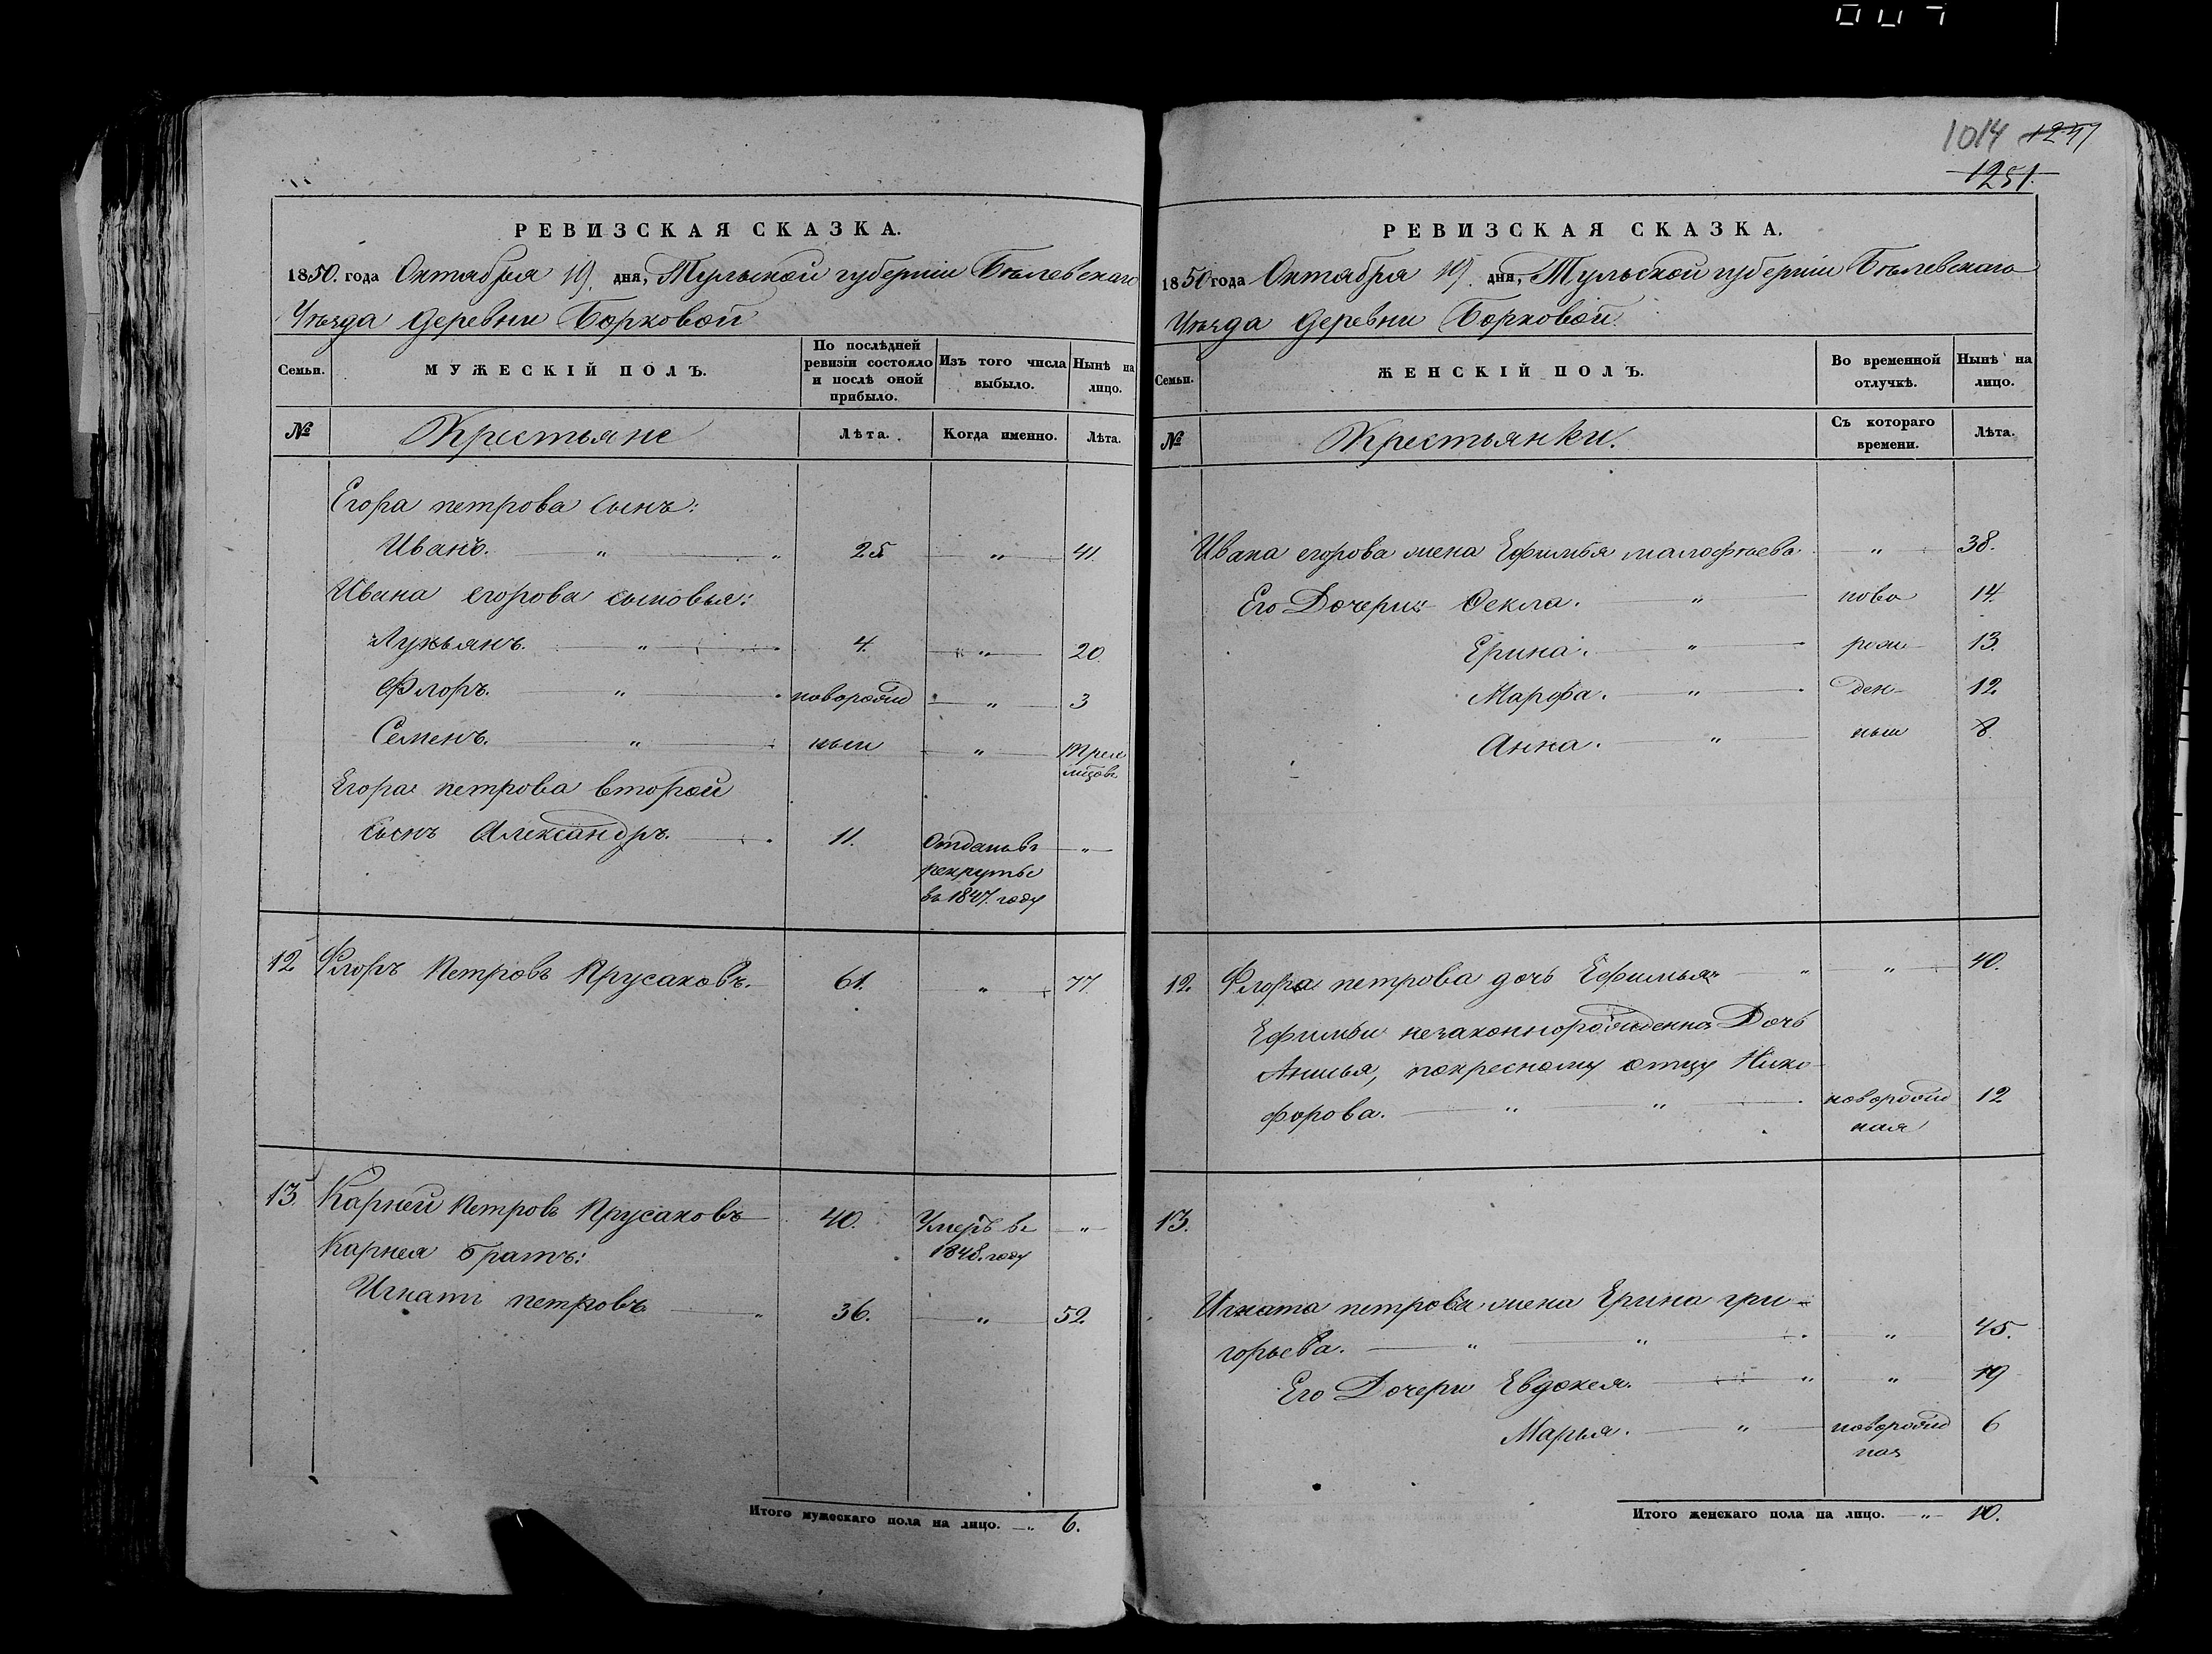 РЕВИЗСКАЯ СКАЗКА.
1850. года Октября 19. дня, Тульской губерніи Бѣлевскаго
Уѣзда деревни Борковой
Семьи. МУЖЕСКІЙ ПОЛЪ. По послѣдней ревизіи состояло и послѣ оной прибыло. Изъ того числа выбыло. Нынѣ на лицо.
№ Крестьяне Лѣта. Когда именно. Лѣта.
Егора петрова сынъ:
Иванъ. " " 25 " 41.
Ивана егорова сыновья:
Лукьянъ. " 4. " 20.
Флоръ. " новорожд " 3
Семенъ. " ные "
Егора петрова второй
сынъ Александръ. 11. Отданъ въ "
рекруты
въ 1847. году
12 Флоръ Петровъ Прусаковъ. 61. " 77.
13. Карней Петровъ Прусаковъ 40. Умеръ въ "
1848. году
Карнея братъ:
Игнатъ петровъ " 36. " 52.
Итого мужескаго пола на лицо. " 6.
1014 1251.
РЕВИЗСКАЯ СКАЗКА.
1850 года Октября 19. дня, Тульской губерніи Бѣлевскаго
Уѣзда деревни Борковой.
Семьи. ЖЕНСКІЙ ПОЛЪ. Во временной отлучкѣ. Нынѣ на лицо.
№ Крестьянки. Съ котораго времени. Лѣта.
Ивана егорова жена Ефимья малофѣева " 38.
Его Дочери: Фекла. " ново 14.
Ерина. " рож 13.
Марфа. " ден- 12.
Анна. " ныя 8.
12. Флора петрова дочь Ефимья " " 40.
Ефимьи незаконнорожденная Дочь
Анисья, покресному отцу Ники-
форова. " " новорожд 12
ная
13.
Игната петрова жена Ерина гри-
горьева. " " " 45.
Его Дочери Евдокея. " " 19
Марья. " новорожд 6
ная
Итого женскаго пола на лицо. " 10.